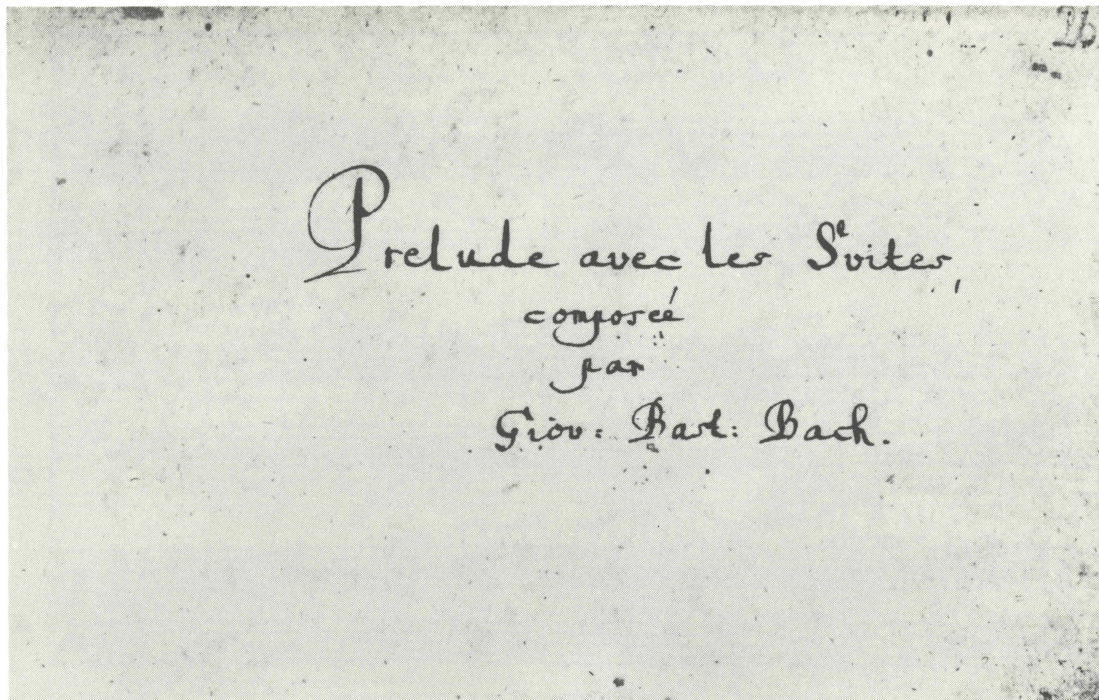 26
Prelude avec les Suites,
composeé
par
Giov: Bast: Bach.